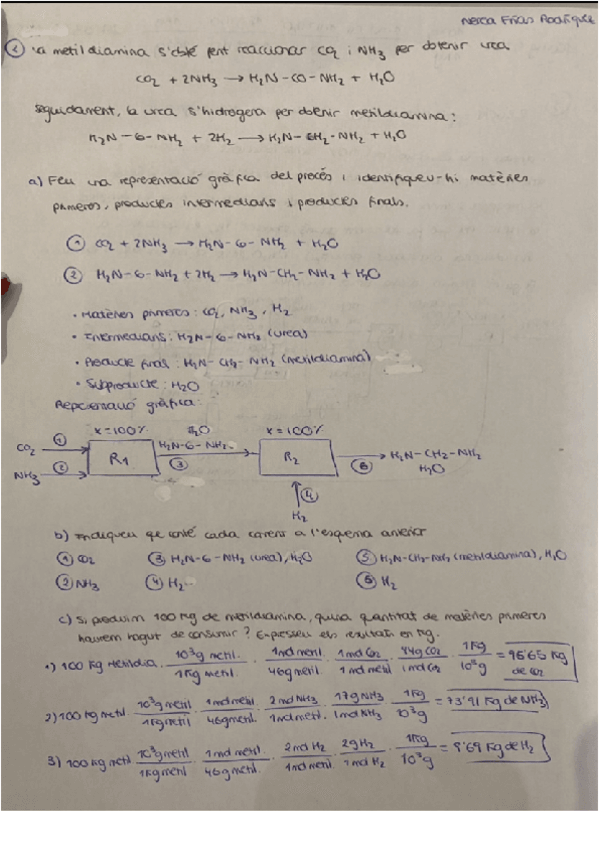 Nerea Frias Rodríguez
① La metildiamina s'obté fent reaccionar CO₂ i NH₃ per obtenir urea
CO₂ + 2NH₃ → H₂N-CO-NH₂ + H₂O
Seguidament, la urea s'hidrogena per obtenir metildiamina:
H₂N-CO-NH₂ + 2H₂ → H₂N-CH₂-NH₂ + H₂O
a) Feu una representació gràfica del procés i identifiqueu-hi matèries
primeres, productes intermedians i productes finals.
① CO₂ + 2NH₃ → H₂N-CO-NH₂ + H₂O
② H₂N-CO-NH₂ + 2H₂ → H₂N-CH₂-NH₂ + H₂O
• Matèries primeres: CO₂, NH₃, H₂
• Intermedians: H₂N-CO-NH₂ (urea)
• Producte final: H₂N-CH₂-NH₂ (metildiamina)
• Subproducte: H₂O
Representació gràfica:
x=100% H₂O x=100%
CO₂ ① R1 H₂N-CO-NH₂ ③ R2 ⑤ H₂N-CH₂-NH₂
NH₃ ② H₂O
④
H₂
b) Indiqueu què conté cada corrent a l'esquema anterior
① CO₂ ③ H₂N-CO-NH₂ (urea), H₂O ⑤ H₂N-CH₂-NH₂ (metildiamina), H₂O
② NH₃ ④ H₂ ⑥ H₂
c) Si produïm 100 Kg de metildiamina, quina quantitat de matèries primeres
haurem hagut de consumir? Expresseu els resultats en Kg.
1) 100 Kg metildia. · 10³g metil. / 1Kg metil. · 1mol metil. / 46g metil · 1mol CO₂ / 1mol metil · 44g CO₂ / 1mol CO₂ · 1Kg / 10³g = 95'65 Kg de CO₂
2) 100 Kg metil · 10³g metil / 1Kg metil · 1mol metil. / 46g metil. · 2mol NH₃ / 1mol metil. · 17g NH₃ / 1mol NH₃ · 1Kg / 10³g = 73'91 Kg de NH₃
3) 100 Kg metil · 10³g metil / 1Kg metil · 1mol metil. / 46g metil · 2mol H₂ / 1mol metil · 2g H₂ / 1mol H₂ · 1Kg / 10³g = 8'69 Kg de H₂